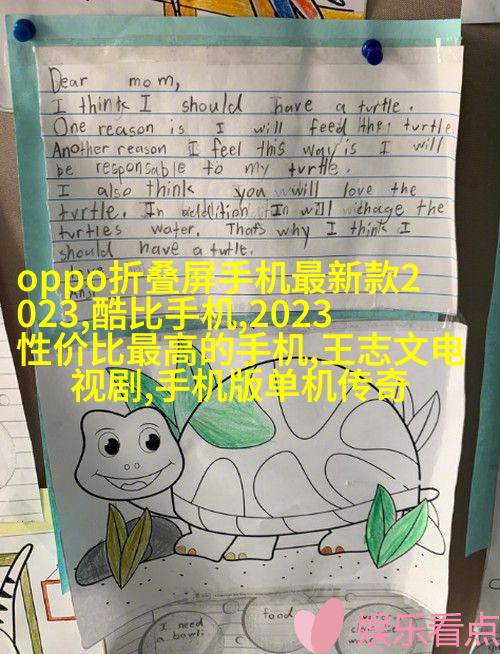 Dear mom,
I think I should have a turtle.
One reason is I will feed the turtle.
Another reason I feel this way is I will
be responsable to my turtle.
I also think you will love the
turtle. In addition In will chage the
turtles water. Thats why I think I
should have a turtle.
oppo折叠屏手机最新款2
023,酷比手机,2023
性价比最高的手机,王志文电
视剧,手机版单机传奇
I need
a bowl
food
娱乐看点